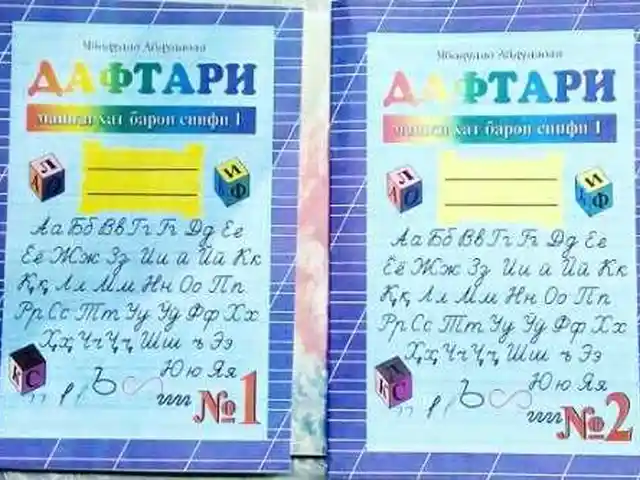 ДАФТАРИ
машқи хат барои синфи 1
Л
И
Ф
Аа Бб Вв Гг Ғғ Дд Ее
Ёё Жж Зз Ии й Йй Кк
Ққ Лл Мм Нн Оо Пп
Рр Сс Тт Уу Ӯӯ Фф Хх
Ҳҳ Чч Ҷҷ Шш ъ Ээ
Юю Яя
К С
Ъ
№1
ДАФТАРИ
машқи хат барои синфи 1
Л
И
Ф
Аа Бб Вв Гг Ғғ Дд Ее
Ёё Жж Зз Ии й Йй Кк
Ққ Лл Мм Нн Оо Пп
Рр Сс Тт Уу Ӯӯ Фф Хх
Ҳҳ Чч Ҷҷ Шш ъ Ээ
Юю Яя
К С
Ъ
№2